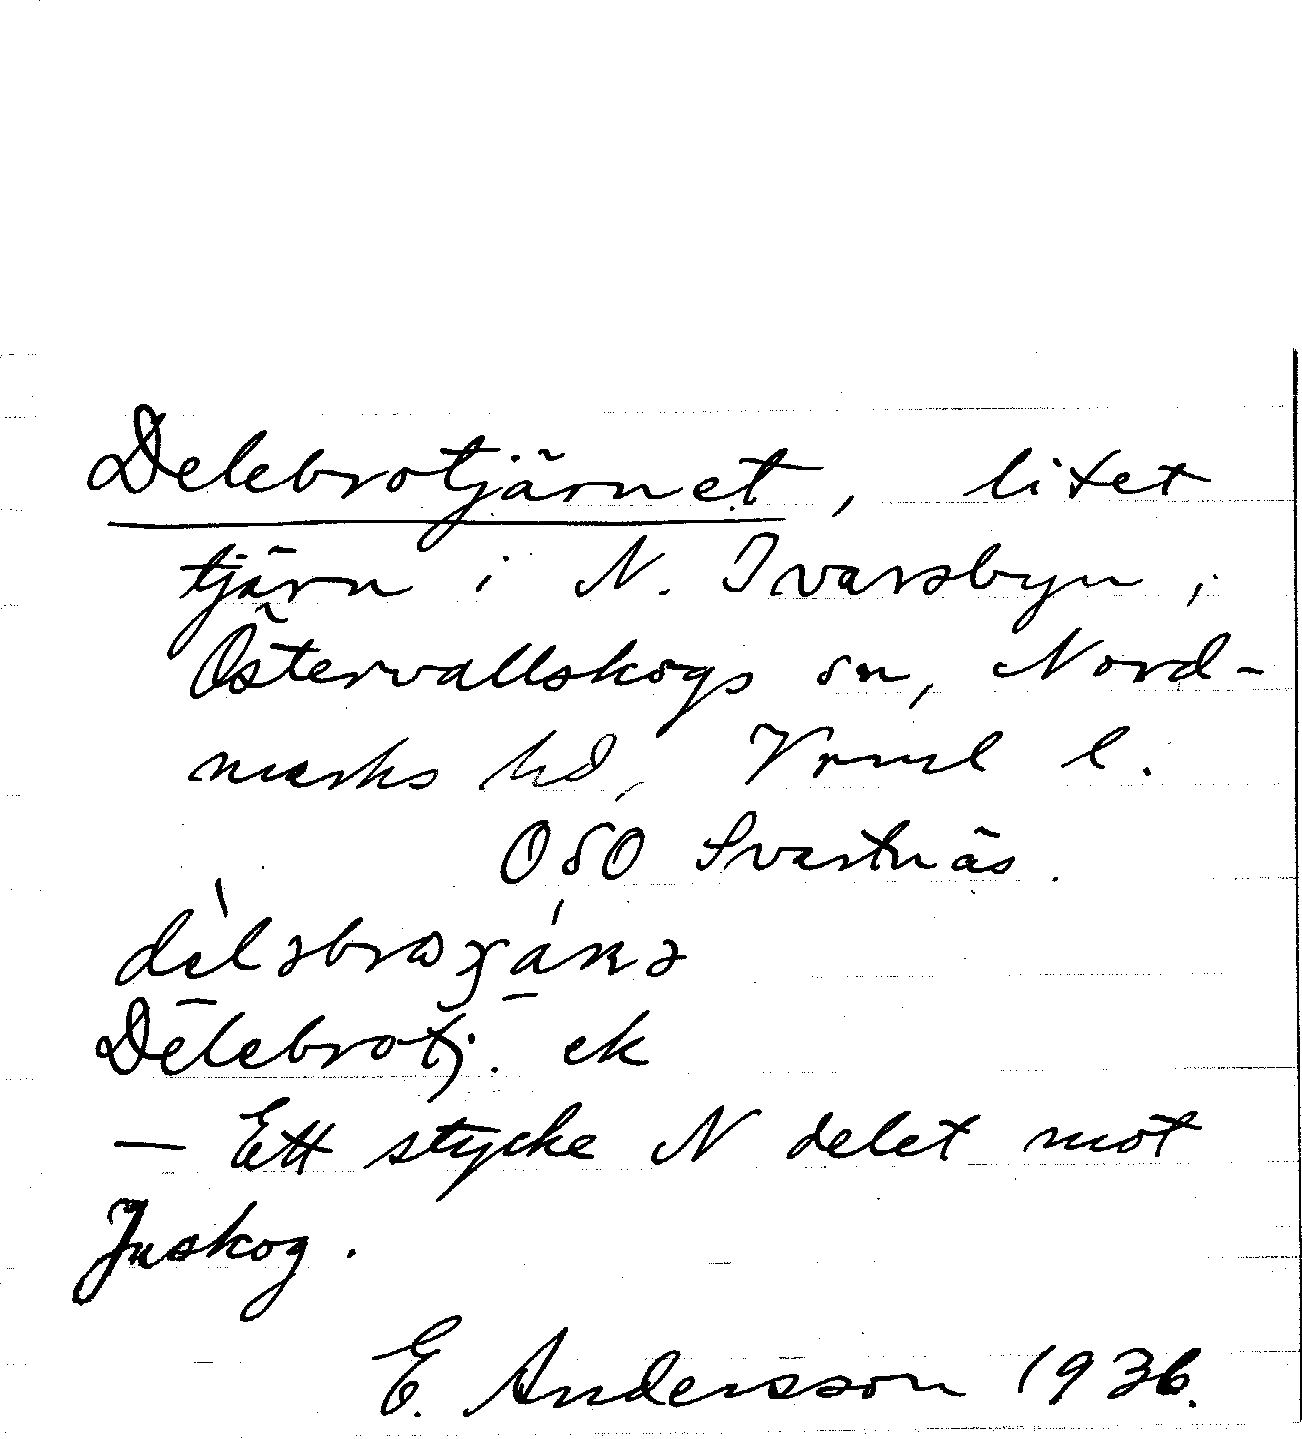 Delebrotjärnet, litet
tjärn i N. Ivarsbyn,
Östervallskogs sn, Nord-
marks hd, Vrml l.
OSO Svartnäs.
Delebrotj. ek
— Ett stycke N delet mot
Juskog.
E. Andersson 1936.